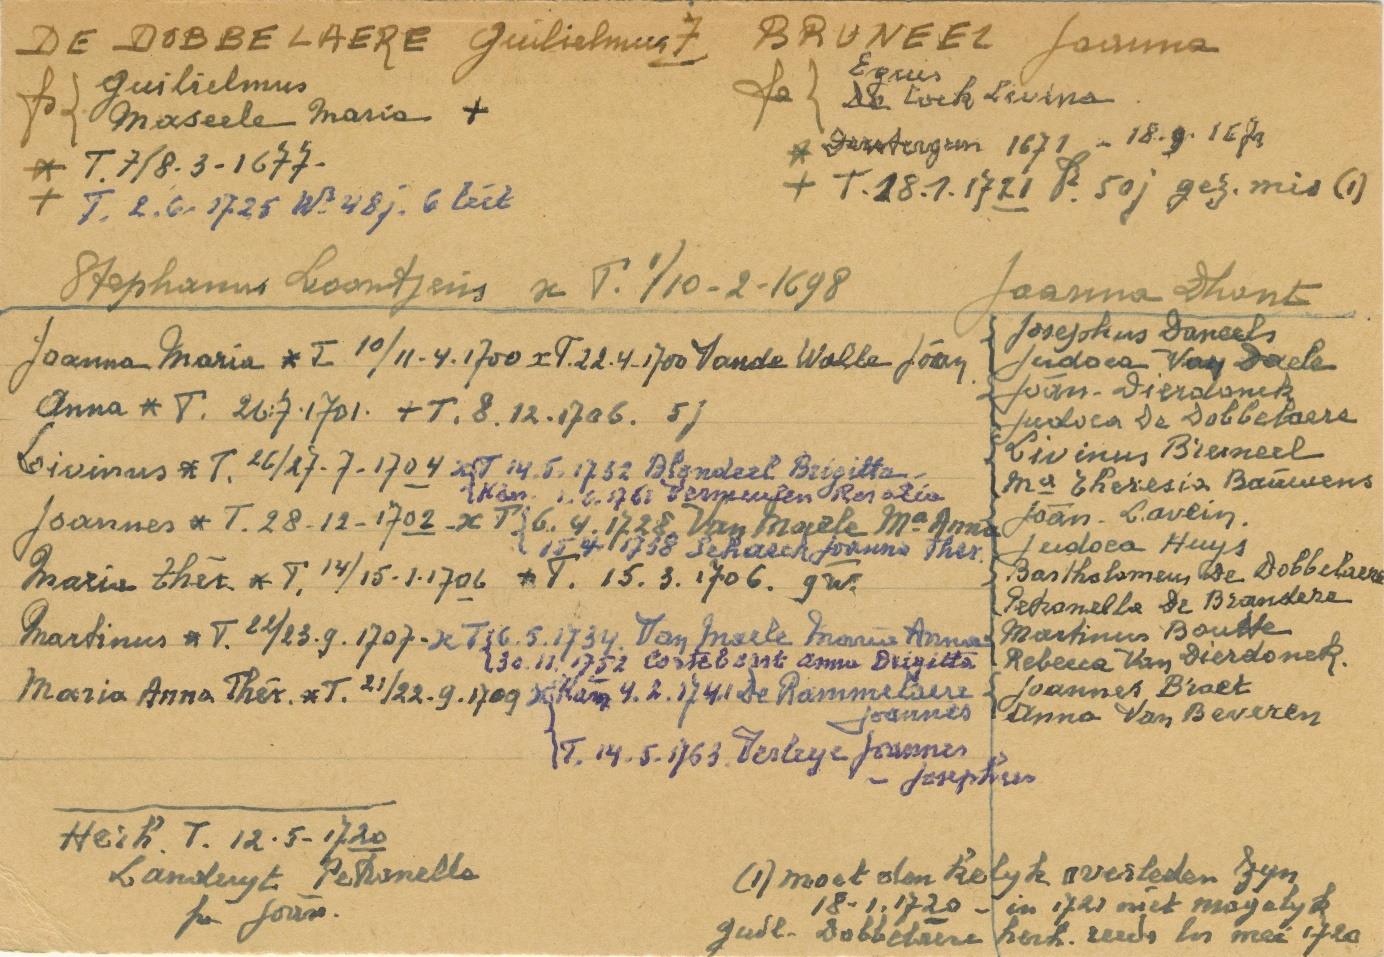 DE DOBBELAERE Guilielmus BRUNEEL Joanna
fs { Guilielmus
Maseele Maria +
fa { Egius
De Cock Livina
* T. 7/8.3-1677-
+ T. 2.6-1725 Wr 48j. 6 
* Dentergem 1671 - 18.9.
+ T. 18.1.1721 50j gez. mis (1)
Stephanus Loontjens x T. 1/10-2-1698 Joanna Dhont
Joanna Maria * T 10/11-4.1700 x T. 22.4.1700 Vande Walle Joan
Josephus Daneels
Judoca Van Daele
Anna * T. 26.7.1701. + T. 8.12.1706. 5j
Joan. Dierdonck
Judoca De Dobbelaere
Livinus * T. 26/27-7-1704 x { T. 14.5.1732 Blondeel Brigitta
Kan. 1.6.1761 Vermeulen Rosalia
Livinus Bruneel
Ma Theresia Bauwens
Joannes * T. 28-12-1702 - x T { 6.4.1728 Van Maele Ma Anna
15.4.1738 Schaeck Joanna Ther.
Joan. Lavein.
Judoca Huys
Maria Ther. * T. 14/15-1.1706 * T. 15.3.1706. 9w.
Bartholomeus De Dobbelaere
Petronella De Brandere
Martinus * T. 22/23.9.1707 - x T { 6.5.1734. Van Maele Maria Anna
30.11.1752 Anna Brigitta
Martinus Boutte
Rebecca Van Dierdonck.
Maria Anna Ther. * T. 21/22.9.1709 x { Kan 4.2.1741 De Rammelaere
Joannes
T. 14-5-1763 Verleye Joannes
- Josephus
Joannes Braet
Anna Van Beveren
Herh. T. 12.5-1720
Landuyt Petronella
fa Joan.
(1) moet den kelyk overleden zyn
18-1.1720 - in 1721 niet mogelyk
Guil. Dobbelaere herh. reeds in mei 1720